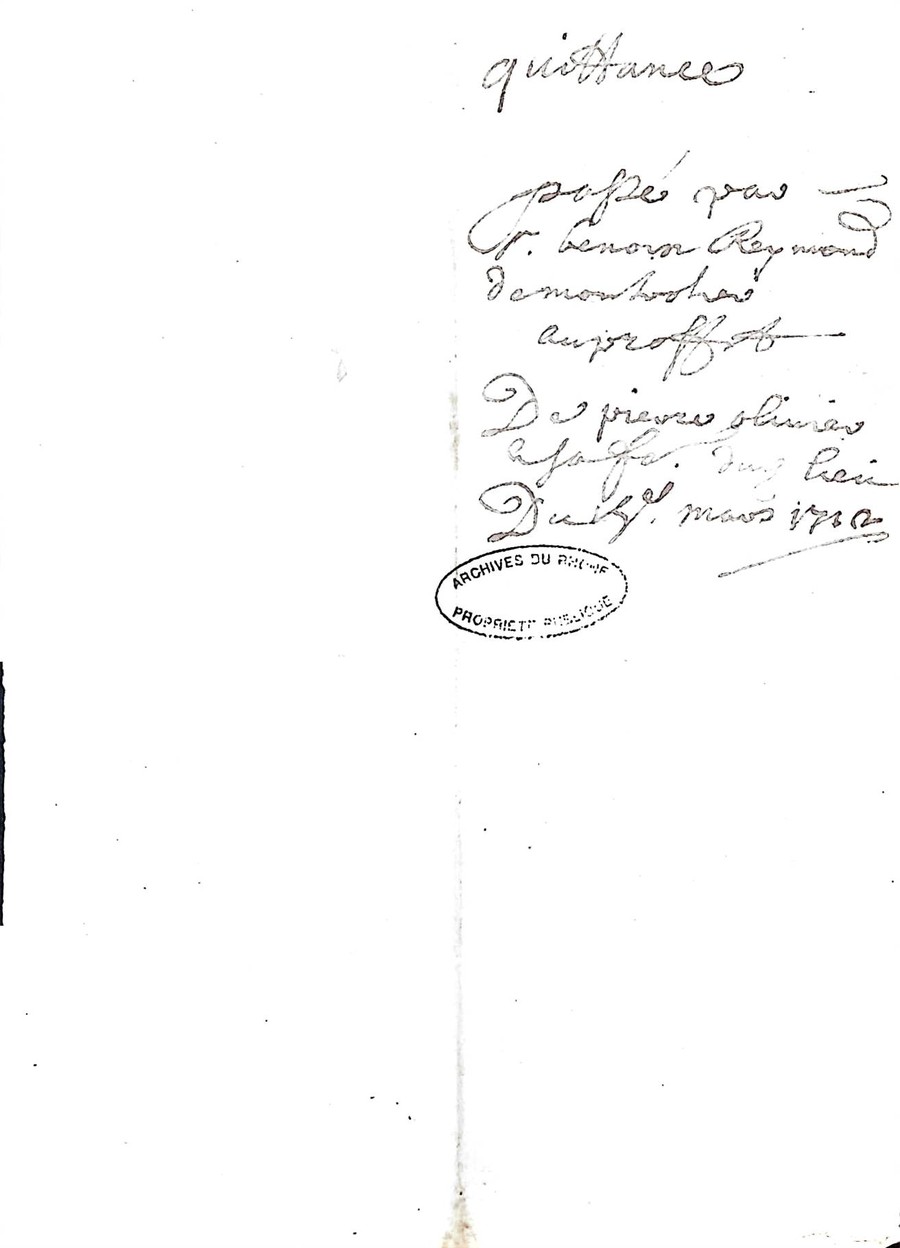 quittance
passé par
Sr. benoist Reymond
de
au proffit
De pierre olivier
a sa fe. dud lieu
Du mars 1712
ARCHIVES DU RHONE
PROPRIETE PUBLIQUE